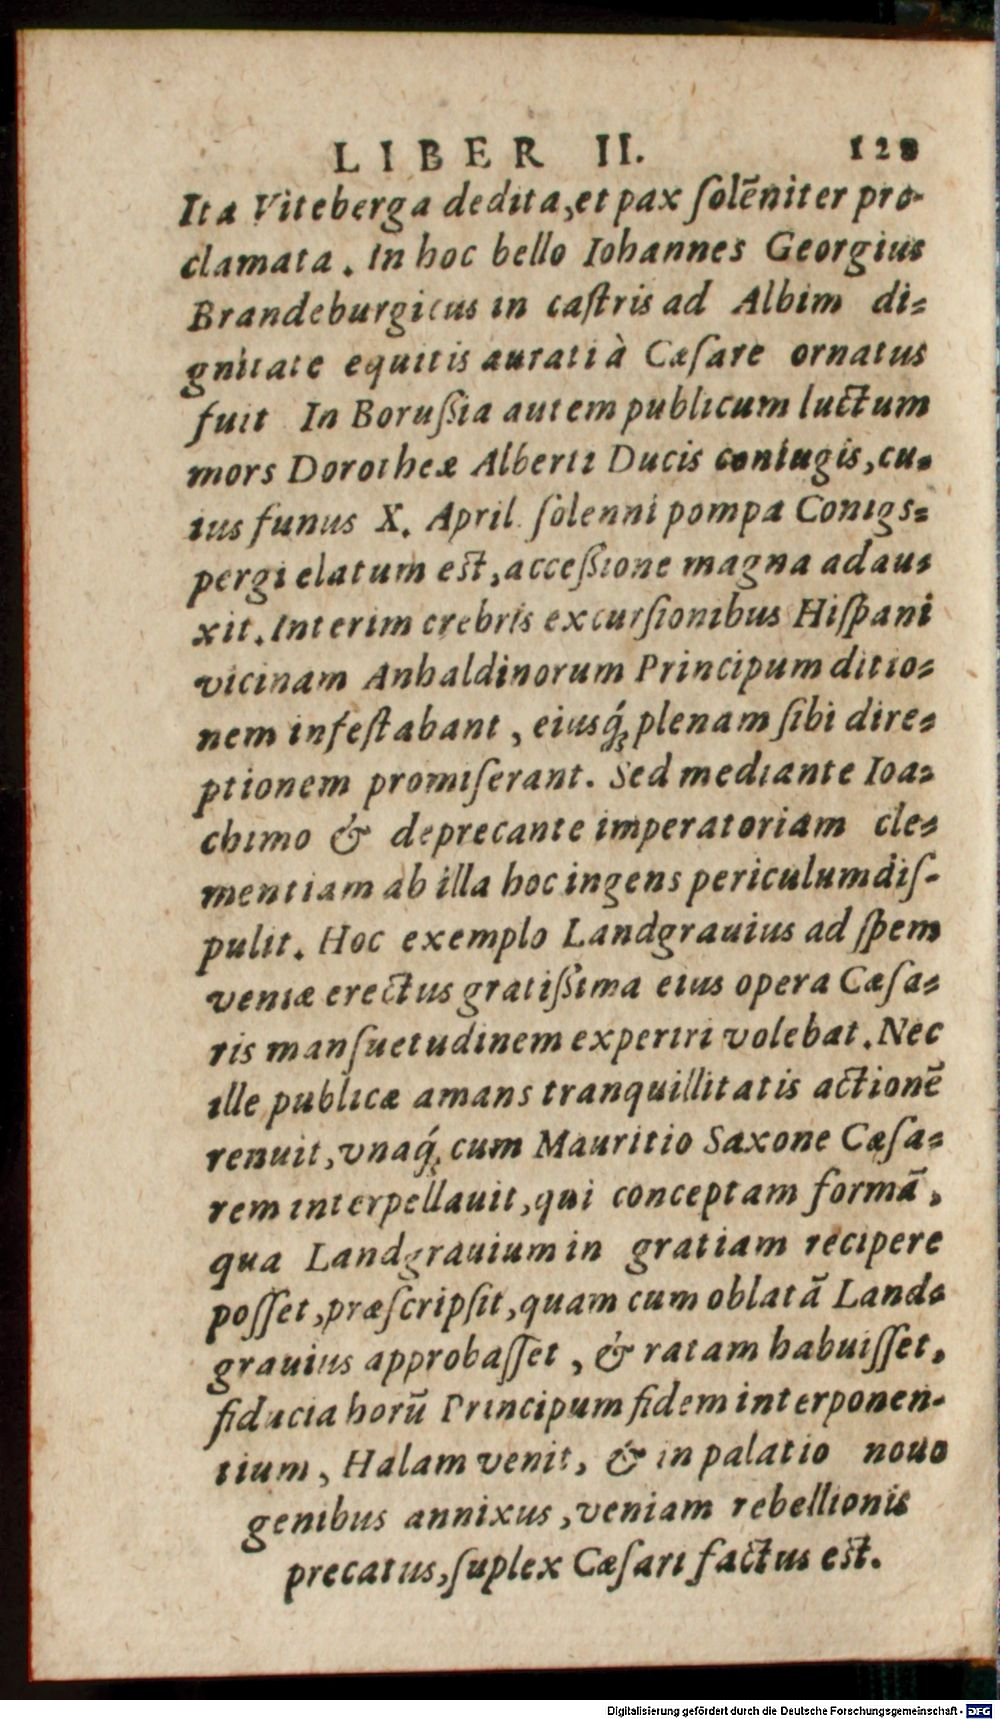 LIBER II. 128
Ita Viteberga dedita, et pax ſolēniter pro-
clamata. In hoc bello Iohannes Georgius
Brandeburgicus in caſtris ad Albim di-
gnitate equitis aurati à Cæſare ornatus
fuit In Boruſſia autem publicum luctum
mors Dorotheæ Alberti Ducis coniugis, cu-
ius funus X. April. ſolenni pompa Conigs-
pergi elatum est, acceſſione magna adau-
xit. Interim crebris excurſionibus Hiſpani
vicinam Anhaldinorum Principum ditio-
nem infeſtabant, eiusq́ꝫ plenam ſibi dire-
ptionem promiſerant. Sed mediante Ioa-
chimo & deprecante imperatoriam cle-
mentiam ab illa hoc ingens periculum diſ-
pulit. Hoc exemplo Landgrauius ad ſpem
veniæ erectus gratiſſima eius opera Cæſa-
ris manſuetudinem experiri volebat. Nec
ille publicæ amans tranquillitatis actionē
renuit, vnaq́ꝫ cum Mauritio Saxone Cæſa-
rem interpellauit, qui conceptam formā,
qua Landgrauium in gratiam recipere
poſſet, præſcripſit, quam cum oblatā Land-
grauius approbaſſet, & ratam habuiſſet,
fiducia horū Principum fidem interponen-
tium, Halam venit, & in palatio nouo
genibus annixus, veniam rebellionis
precatus, ſuplex Cæſari factus est.
Digitalisierung gefördert durch die Deutsche Forschungsgemeinschaft - DFG